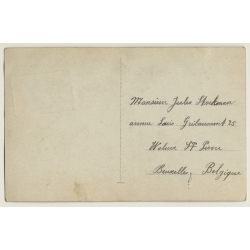 Monsieur Jules
avenue Louis Gribaumont 25
Woluwe St Pierre
Bruxelles, Belgique